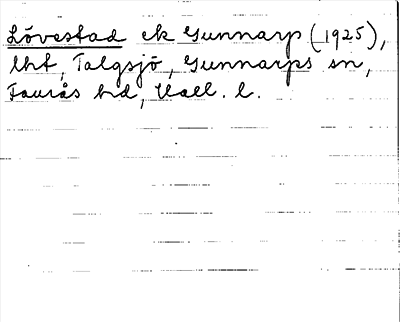 Lövestad ek Gunnarp (1925),
lht, Talgsjö, Gunnarps sn,
Faurås hd, Hall. l.